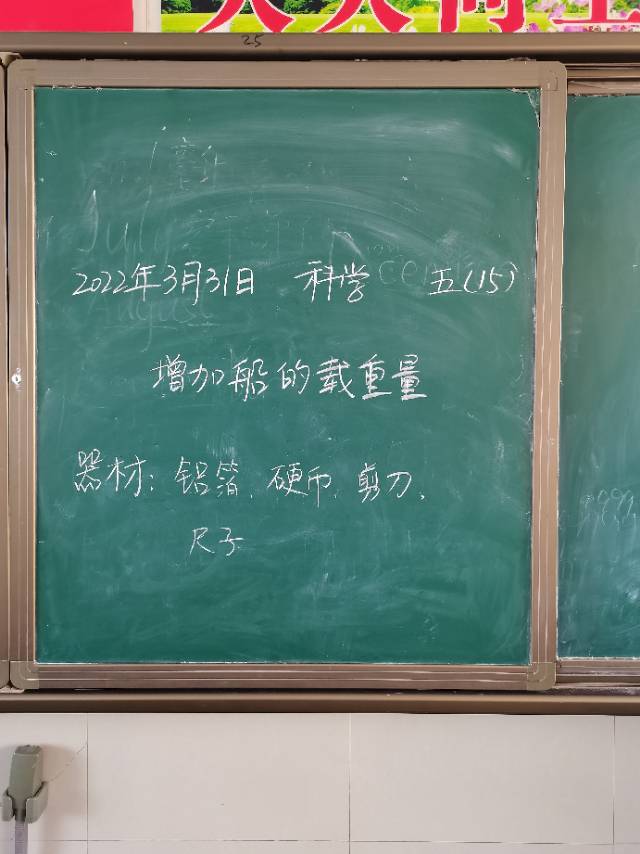 25
2022年3月31日 科学 五(15)
增加船的载重量
器材:铝箔、硬币、剪刀、
尺子